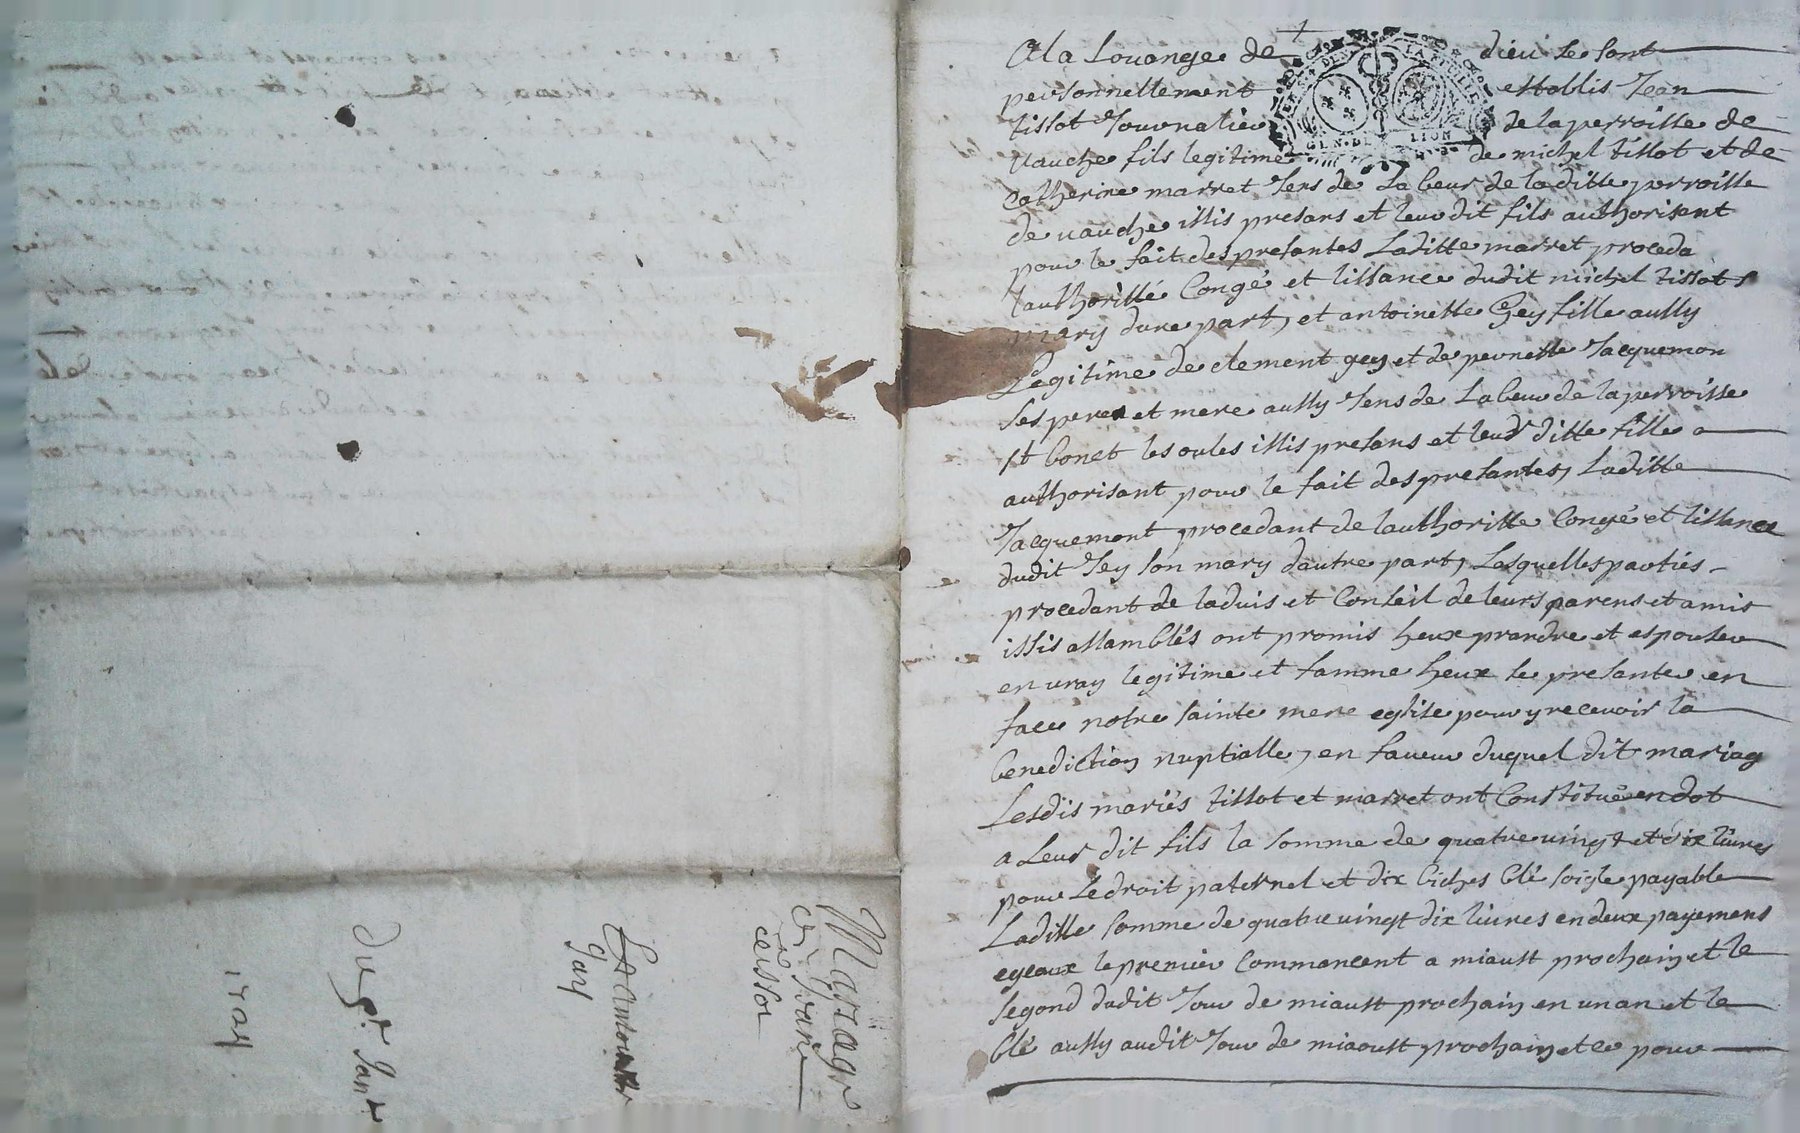 A la Louange de dieu se sont
personnellement establis Jean
tissot Journalier de la perroisse de
vauche fils legitime de michel tissot et de
Catherine marret Jens de Labeur de laditte perroisse
de vauche issis presans et leur dit fils authorisent
pour le fait des presantes Laditte marret proceda
lauthorillé Congé et lissance dudit michel tissot s
mary dune part, et antoinette Gey fille aussy
Legitime de clement gey et de pernette Jacquemon
ses perea et mere aussy Jens de Labeur de la perroisse
st bonet les oules issis presans et leur ditte fille
authorisant pour le fait des presantes, Laditte
Jacquemont procedant de lauthoritte Congé et lissance
dudit Jey son mary dautre part, Lesquelles parties
procedant de ladvis et Conseil de leurs parens et amis
issis assamblés ont promis heux prandre et espouser
en vray legitime et famme heux se presanter en
face notre sainte mere eglise pour y recevoir la
benediction nuptialle, en faveur duquel dit mariag
Lesdis mariés tissot et marret ont Constitué en dot
a Leur dit fils la somme de quatre vingt et dix livres
pour Le droit paternel et dix biches blé soigle payable
Laditte somme de quatre vingt dix livres en deux payemens
egeaux le premier Commancent a miaust prochain et le
segond dudit Jour de miaust prochain en un an et le
blé aussy audit Jour de miaoust prochain et ce pour
Mariage
Jean
tissot
Et antoinette
Gay
Du 9e Janr
1704
DE LION
GEN.